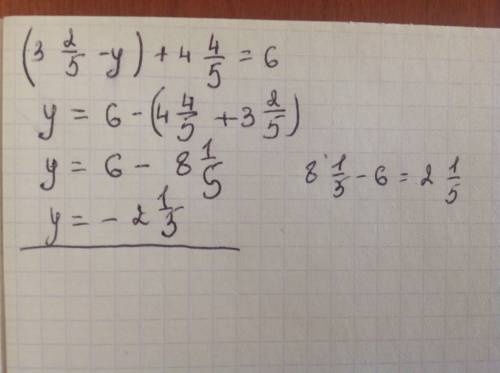 (3 2/5 - y) + 4 4/5 = 6
y = 6 - (4 4/5 + 3 2/5)
y = 6 - 8 1/5
8 1/5 - 6 = 2 1/5
y = - 2 1/5